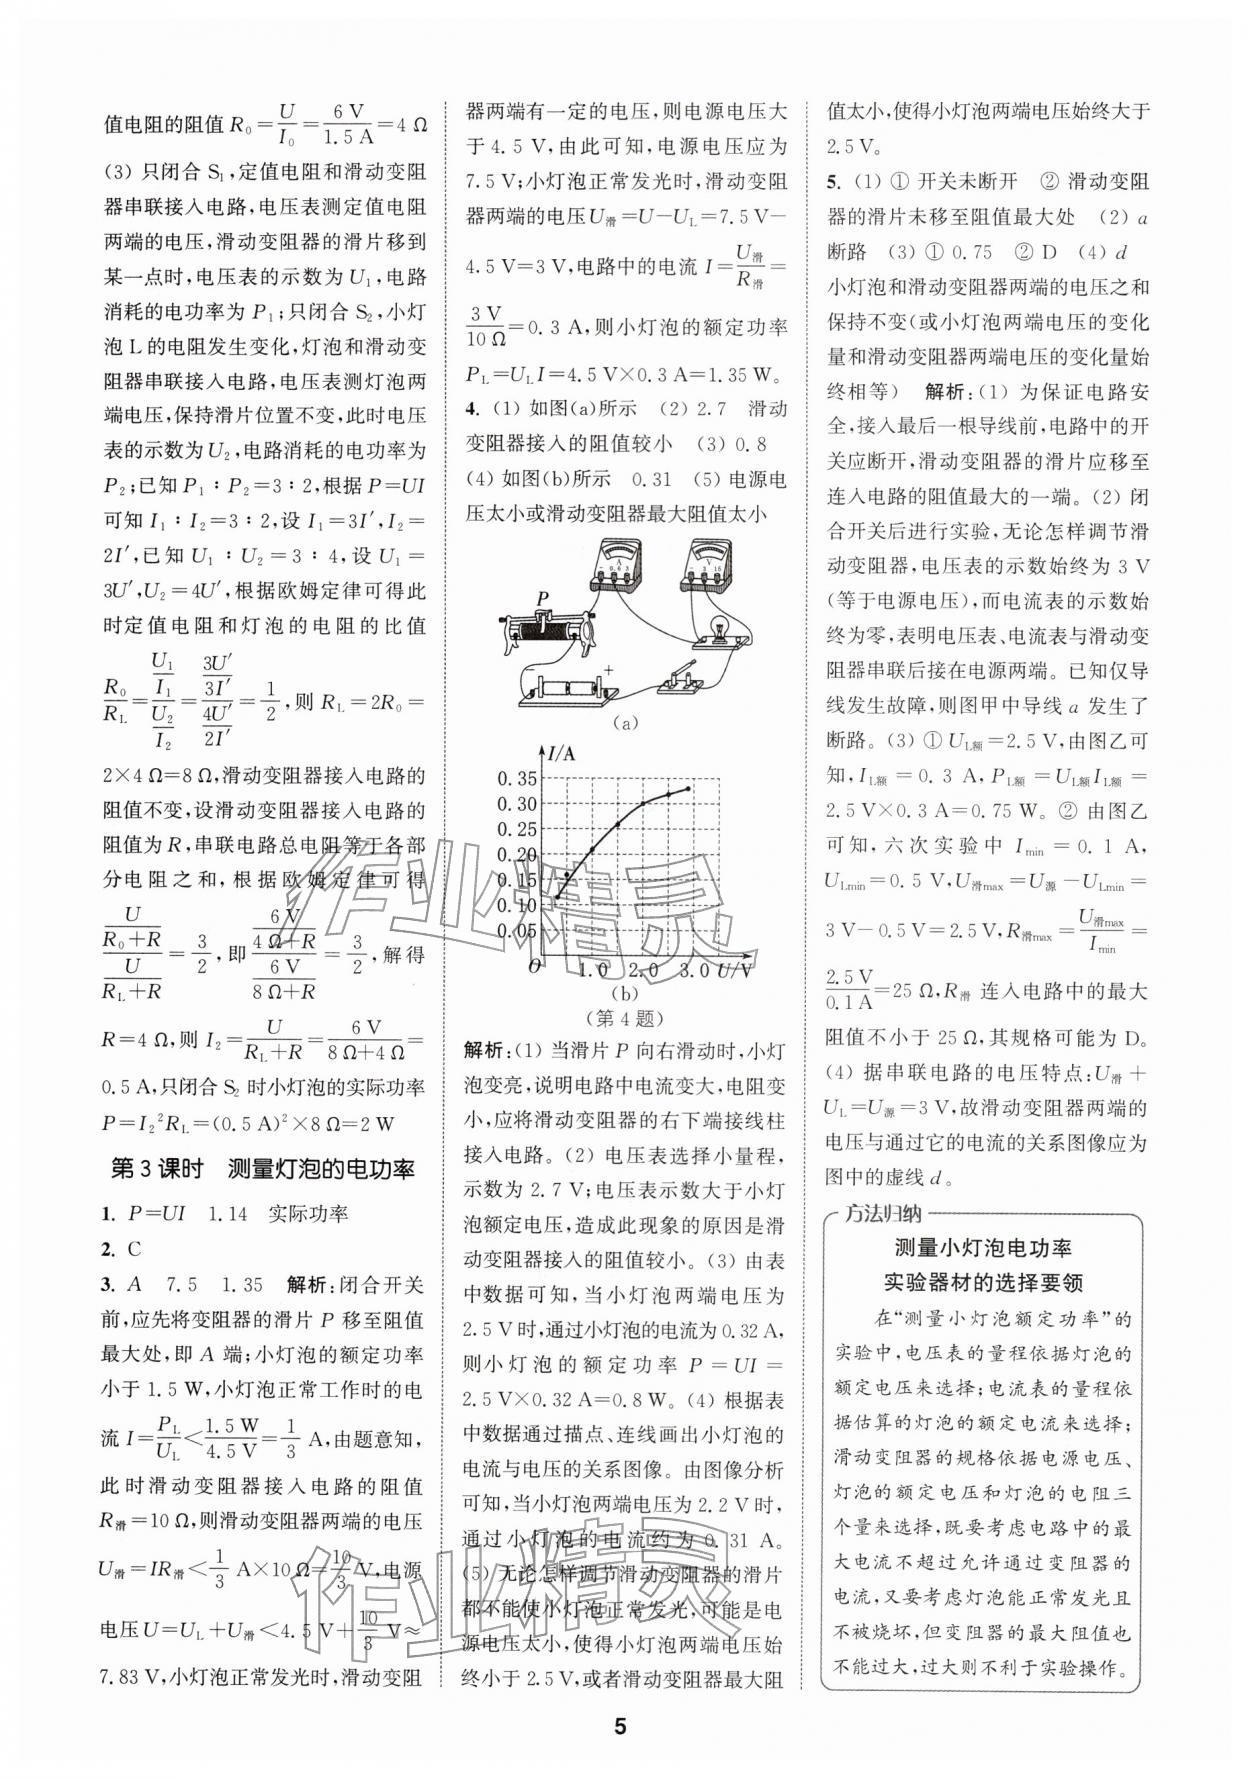 值电阻的阻值 R₀ = U/I₀ = 6 V/1.5 A = 4 Ω
(3) 只闭合 S₁,定值电阻和滑动变阻
器串联接入电路,电压表测定值电阻
两端的电压,滑动变阻器的滑片移到
某一点时,电压表的示数为 U₁,电路
消耗的电功率为 P₁;只闭合 S₂,小灯
泡 L 的电阻发生变化,灯泡和滑动变
阻器串联接入电路,电压表测灯泡两
端电压,保持滑片位置不变,此时电压
表的示数为 U₂,电路消耗的电功率为
P₂;已知 P₁∶P₂=3∶2,根据 P=UI
可知 I₁∶I₂=3∶2,设 I₁=3I′,I₂=
2I′,已知 U₁∶U₂=3∶4,设 U₁=
3U′,U₂=4U′,根据欧姆定律可得此
时定值电阻和灯泡的电阻的比值
R₀/R_L = (U₁/I₁)/(U₂/I₂) = (3U′/3I′)/(4U′/2I′) = 1/2,则 R_L=2R₀=
2×4 Ω=8 Ω,滑动变阻器接入电路的
阻值不变,设滑动变阻器接入电路的
阻值为 R,串联电路总电阻等于各部
分电阻之和,根据欧姆定律可得
(U/(R₀+R))/(U/(R_L+R)) = 3/2,即 (6 V/(4 Ω+R))/(6 V/(8 Ω+R)) = 3/2,解得
R=4 Ω,则 I₂ = U/(R_L+R) = 6 V/(8 Ω+4 Ω) =
0.5 A,只闭合 S₂ 时小灯泡的实际功率
P=I₂²R_L=(0.5 A)²×8 Ω=2 W
第 3 课时 测量灯泡的电功率
1. P=UI 1.14 实际功率
2. C
3. A 7.5 1.35 解析:闭合开关
前,应先将变阻器的滑片 P 移至阻值
最大处,即 A 端;小灯泡的额定功率
小于 1.5 W,小灯泡正常工作时的电
流 I = P_L/U_L < 1.5 W/4.5 V = 1/3 A,由题意知,
此时滑动变阻器接入电路的阻值
R滑=10 Ω,则滑动变阻器两端的电压
U滑=IR滑< 1/3 A×10 Ω= 10/3 V,电源
电压 U=U_L+U滑<4.5 V+ 10/3 V≈
7.83 V,小灯泡正常发光时,滑动变阻
器两端有一定的电压,则电源电压大
于 4.5 V,由此可知,电源电压应为
7.5 V;小灯泡正常发光时,滑动变阻
器两端的电压 U滑=U−U_L=7.5 V−
4.5 V=3 V,电路中的电流 I = U滑/R滑 =
3 V/10 Ω=0.3 A,则小灯泡的额定功率
P_L=U_L I=4.5 V×0.3 A=1.35 W。
4. (1) 如图(a)所示 (2) 2.7 滑动
变阻器接入的阻值较小 (3) 0.8
(4) 如图(b)所示 0.31 (5) 电源电
压太小或滑动变阻器最大阻值太小
P
A
− 0.6 3
V
− 3 15
− +
(a)
I/A
0.35
0.30
0.25
0.20
0.15
0.10
0.05
O 1.0 2.0 3.0 U/V
(b)
(第 4 题)
解析:(1) 当滑片 P 向右滑动时,小灯
泡变亮,说明电路中电流变大,电阻变
小,应将滑动变阻器的右下端接线柱
接入电路。(2) 电压表选择小量程,
示数为 2.7 V;电压表示数大于小灯
泡额定电压,造成此现象的原因是滑
动变阻器接入的阻值较小。(3) 由表
中数据可知,当小灯泡两端电压为
2.5 V 时,通过小灯泡的电流为 0.32 A,
则小灯泡的额定功率 P = UI =
2.5 V×0.32 A=0.8 W。(4) 根据表
中数据通过描点、连线画出小灯泡的
电流与电压的关系图像。由图像分析
可知,当小灯泡两端电压为 2.2 V 时,
通过小灯泡的电流约为 0.31 A。
(5) 无论怎样调节滑动变阻器的滑片
都不能使小灯泡正常发光,可能是电
源电压太小,使得小灯泡两端电压始
终小于 2.5 V,或者滑动变阻器最大阻
值太小,使得小灯泡两端电压始终大于
2.5 V。
5. (1) ① 开关未断开 ② 滑动变阻
器的滑片未移至阻值最大处 (2) a
断路 (3) ① 0.75 ② D (4) d
小灯泡和滑动变阻器两端的电压之和
保持不变(或小灯泡两端电压的变化
量和滑动变阻器两端电压的变化量始
终相等) 解析:(1) 为保证电路安
全,接入最后一根导线前,电路中的开
关应断开,滑动变阻器的滑片应移至
连入电路的阻值最大的一端。(2) 闭
合开关后进行实验,无论怎样调节滑
动变阻器,电压表的示数始终为 3 V
(等于电源电压),而电流表的示数始
终为零,表明电压表、电流表与滑动变
阻器串联后接在电源两端。已知仅导
线发生故障,则图甲中导线 a 发生了
断路。(3) ① U_L额=2.5 V,由图乙可
知,I_L额 = 0.3 A,P_L额=U_L额 I_L额=
2.5 V×0.3 A=0.75 W。② 由图乙
可知,六次实验中 I_min = 0.1 A,
U_Lmin=0.5 V,U滑max=U源−U_Lmin=
3 V−0.5 V=2.5 V,R滑max= U滑max/I_min =
2.5 V/0.1 A=25 Ω,R滑 连入电路中的最大
阻值不小于 25 Ω,其规格可能为 D。
(4) 据串联电路的电压特点:U滑+
U_L=U源=3 V,故滑动变阻器两端的
电压与通过它的电流的关系图像应为
图中的虚线 d。
方法归纳
测量小灯泡电功率
实验器材的选择要领
在“测量小灯泡额定功率”的
实验中,电压表的量程依据灯泡的
额定电压来选择;电流表的量程依
据估算的灯泡的额定电流来选择;
滑动变阻器的规格依据电源电压、
灯泡的额定电压和灯泡的电阻三
个量来选择,既要考虑电路中的最
大电流不超过允许通过变阻器的
电流,又要考虑灯泡能正常发光且
不被烧坏,但变阻器的最大阻值也
不能过大,过大则不利于实验操作。
作业精灵
作业精灵
5